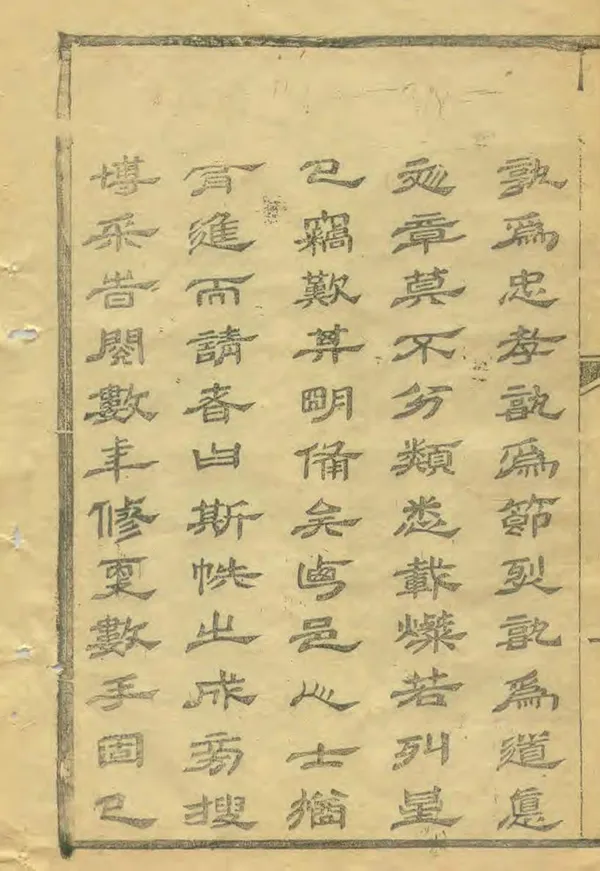 孰爲忠孝孰爲節烈孰爲道悳
彣章莫不分類悉載燦若列星
已竊歎其明備矣卥邑之士猶
有進而請者曰斯帙之成旁搜
博采旹閱數年修更數手固已